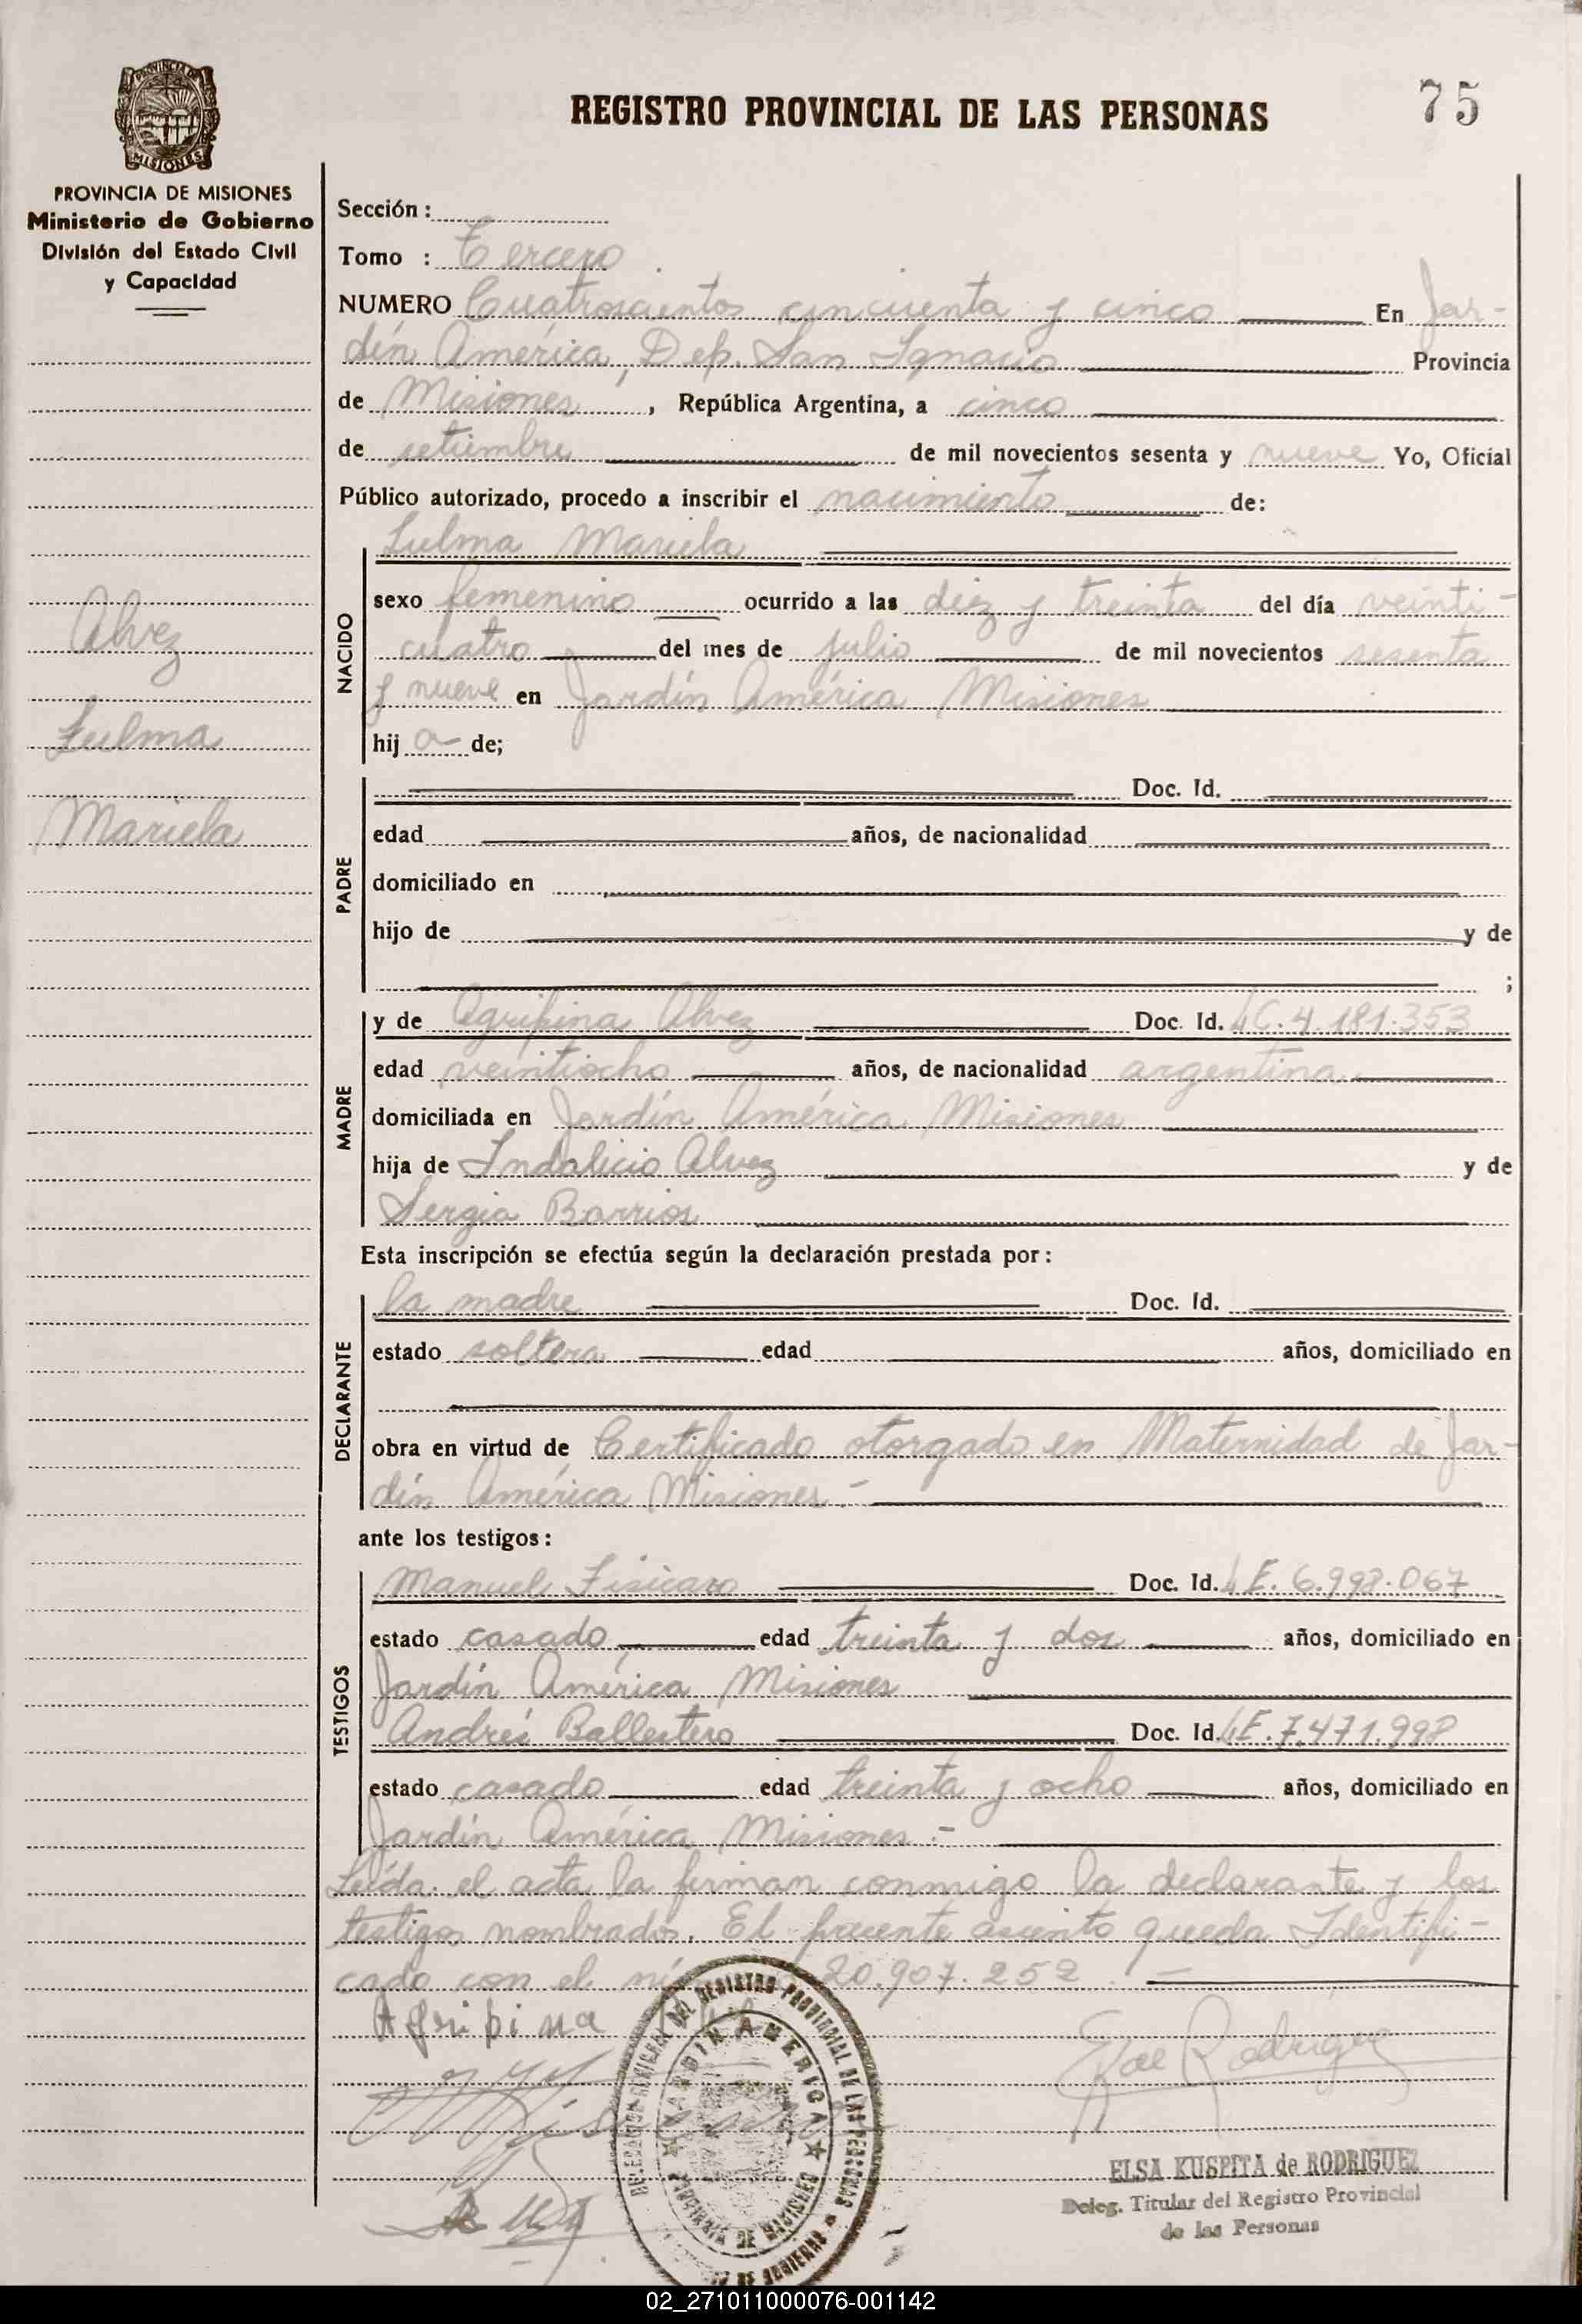 PROVINCIA DE MISIONES
REGISTRO PROVINCIAL DE LAS PERSONAS
75
PROVINCIA DE MISIONES
Ministerio de Gobierno
División del Estado Civil
y Capacidad
Alvez
Zulma
Mariela
Sección :
Tomo : Tercero
NUMERO Cuatroscientos cincuenta y cinco En Jar-
dín América, Dep. San Ignacio Provincia
de Misiones, República Argentina, a cinco
de setiembre de mil novecientos sesenta y nueve Yo, Oficial
Público autorizado, procedo a inscribir el nacimiento de:
Zulma Mariela
NACIDO
sexo femenino ocurrido a las diez y treinta del día veinti-
cuatro del mes de julio de mil novecientos sesenta
y nueve en Jardín América Misiones
hij a de;
PADRE
Doc. Id.
edad años, de nacionalidad
domiciliado en
hijo de y de
;
MADRE
y de Agripina Alvez Doc. Id. LC. 4.181.353
edad veintiocho años, de nacionalidad argentina
domiciliada en Jardín América Misiones
hija de Indalicio Alvez y de
Sergia Barrios
Esta inscripción se efectúa según la declaración prestada por :
DECLARANTE
la madre Doc. Id.
estado soltera edad años, domiciliado en
obra en virtud de Certificado otorgado en Maternidad de Jar-
dín América Misiones.-
ante los testigos :
TESTIGOS
Manuel Fisicaro Doc. Id. LE. 6.998.067
estado casado edad treinta y dos años, domiciliado en
Jardín América Misiones
Andrés Ballestero Doc. Id. LE. 7.471.998
estado casado edad treinta y ocho años, domiciliado en
Jardín América Misiones.-
Leída el acta la firman conmigo la declarante y los
testigos nombrados. El presente asiento queda Identifi-
cado con el 20.907.252.-
Agripina
Rodriguez
DELEGACION DEL REGISTRO PROVINCIAL DE LAS PERSONAS
JARDIN AMERICA
PROVINCIA DE MISIONES
DE GOBIERNO
ELSA KUSPITA de RODRIGUEZ
Deleg. Titular del Registro Provincial
de las Personas
02_271011000076-001142